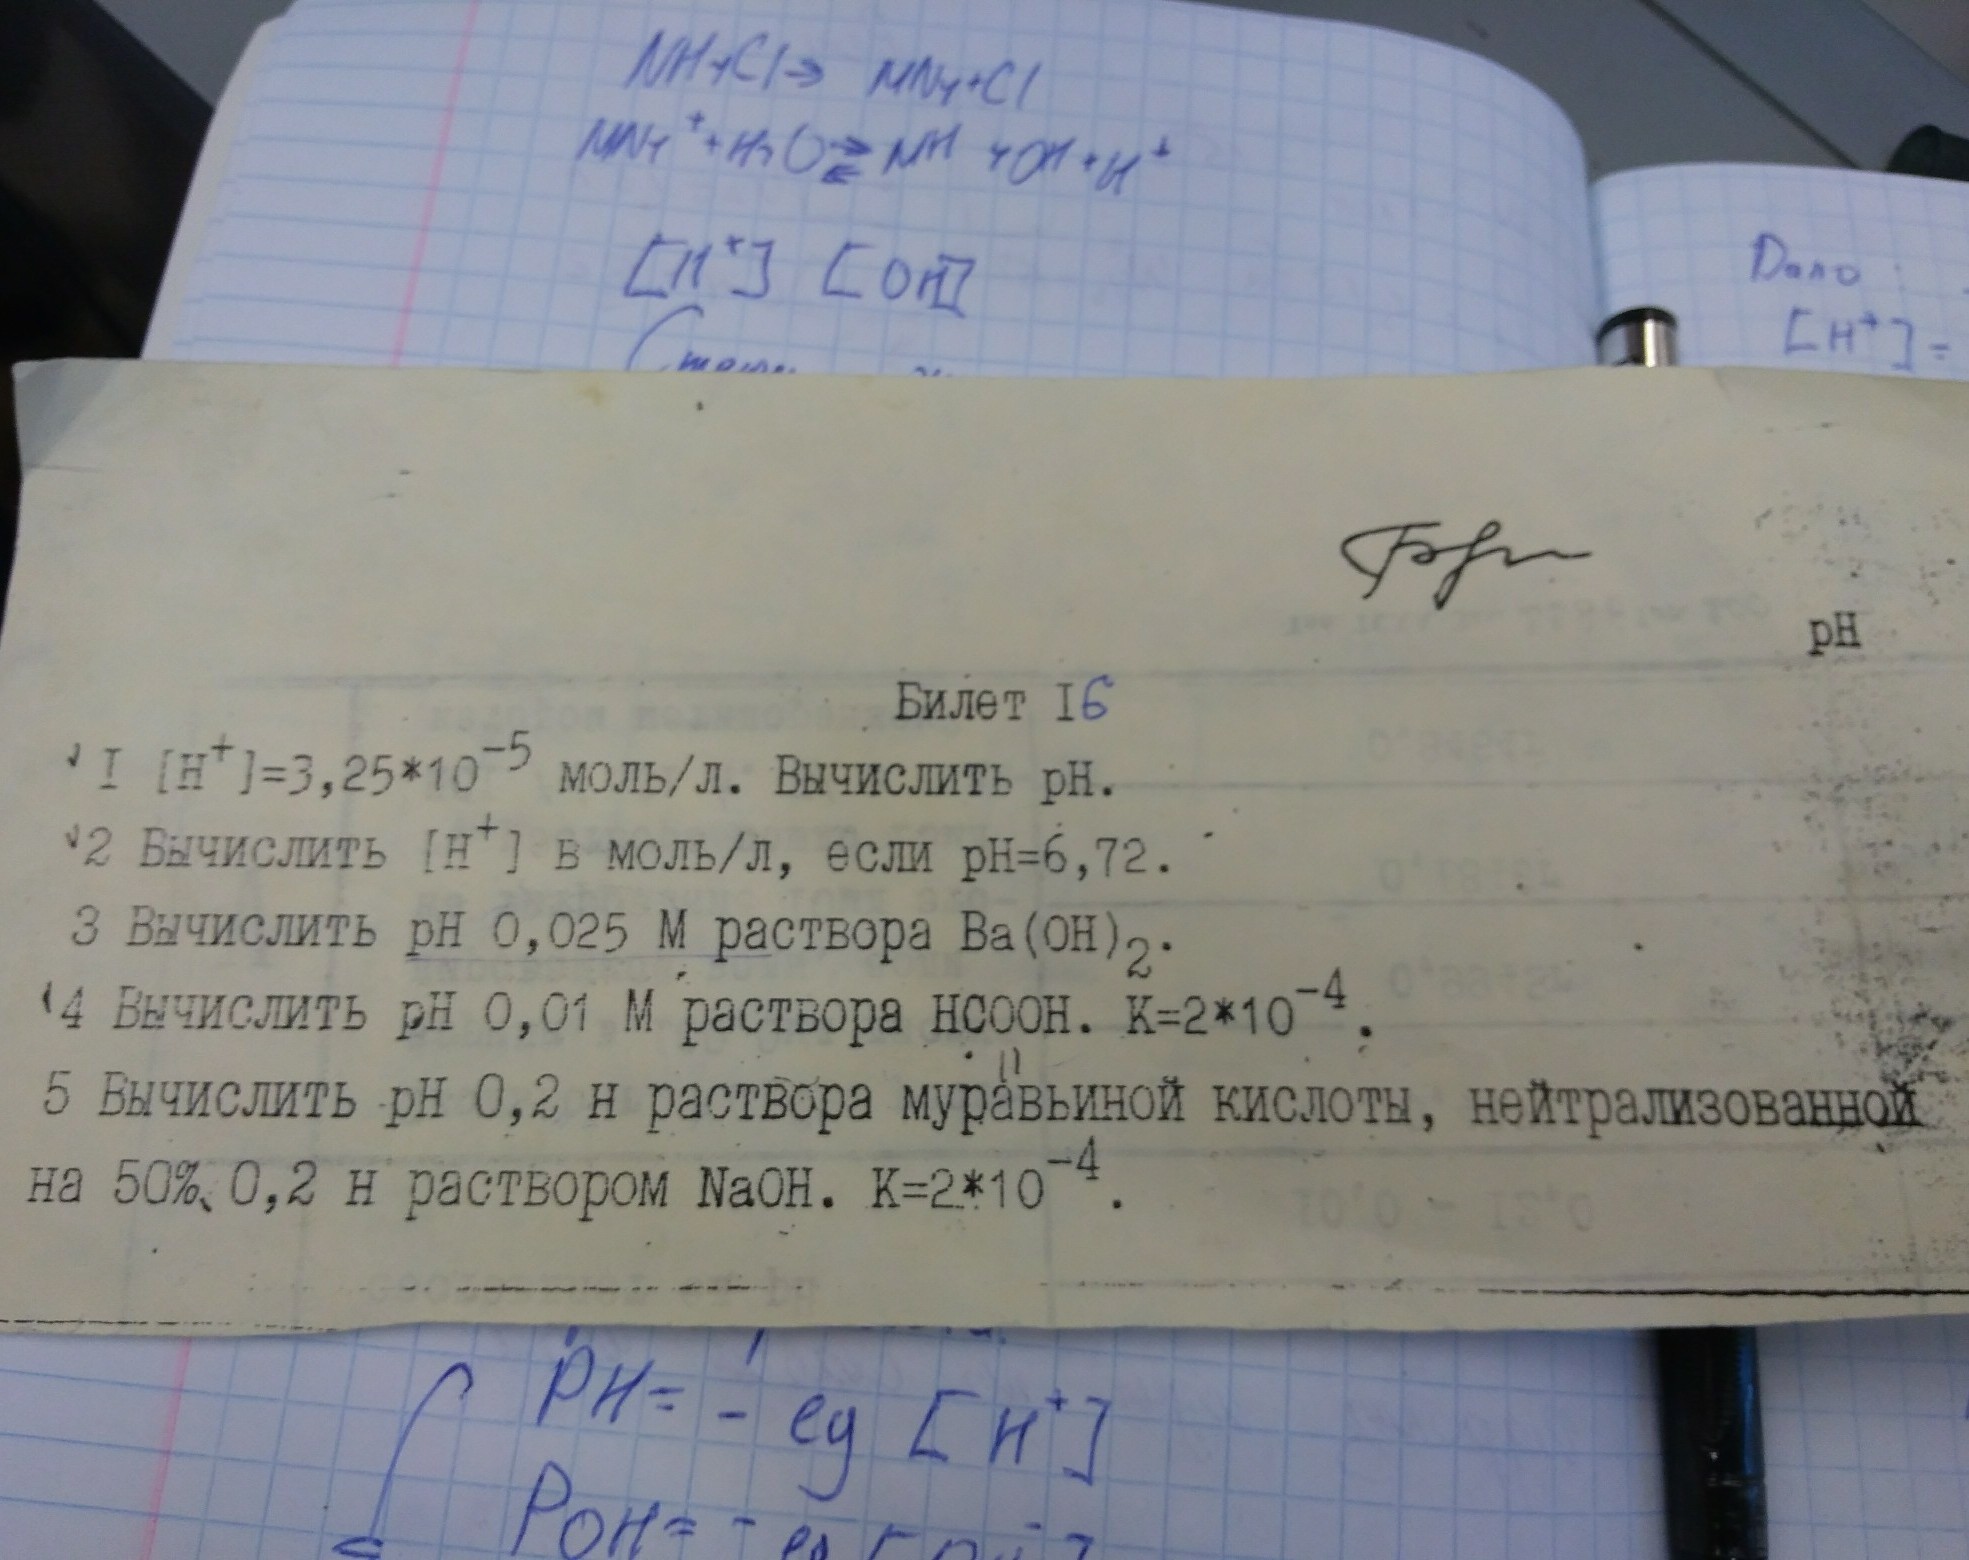 NH4Cl → NH4+Cl
NH4⁺+H2O ⇄ NH4OH+H⁺
[H⁺] [OH]
Дано:
[H⁺]=
pH
Билет I6
I [H⁺]=3,25*10⁻⁵ моль/л. Вычислить pH.
2 Вычислить [H⁺] в моль/л, если pH=6,72.
3 Вычислить pH 0,025 М раствора Ba(OH)₂.
4 Вычислить pH 0,01 М раствора HCOOH. K=2*10⁻⁴.
5 Вычислить pH 0,2 н раствора муравьиной кислоты, нейтрализованной
на 50%, 0,2 н раствором NaOH. K=2*10⁻⁴.
PH= - lg [H⁺]
POH= - lg